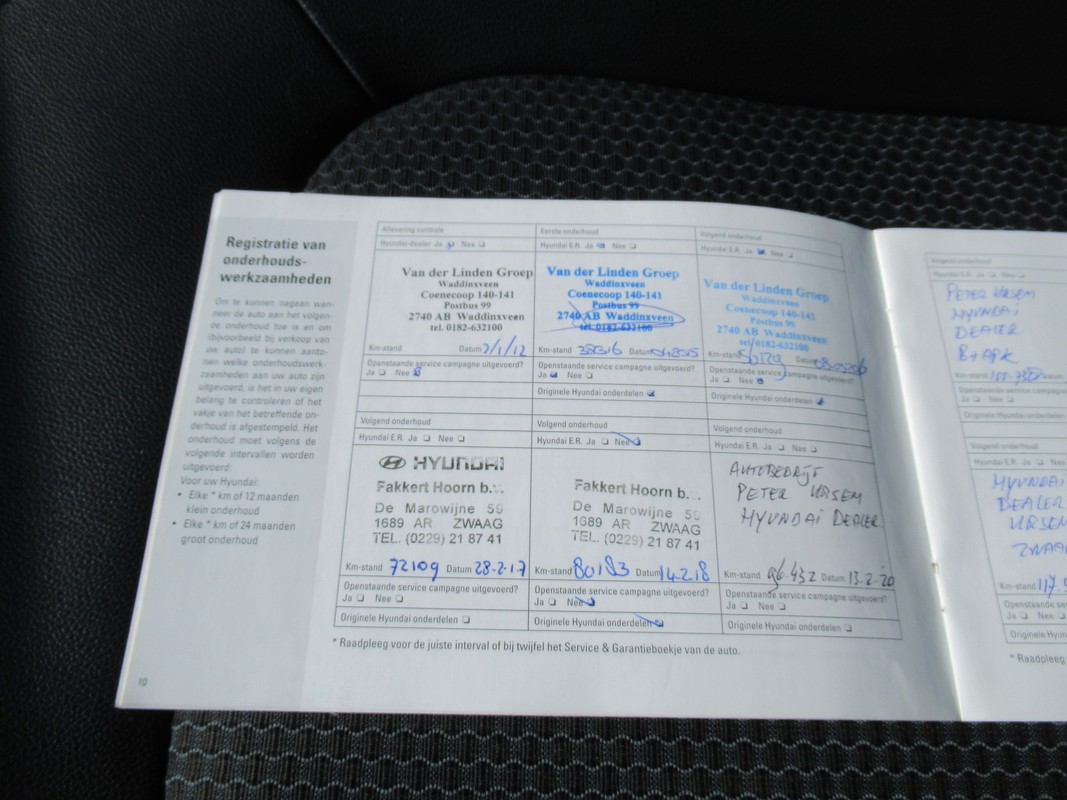 Registratie van
onderhouds-
werkzaamheden
Om te kunnen nagaan wan-
neer de auto aan het volgen-
de onderhoud toe is en om
(bijvoorbeeld bij verkoop van
uw auto) te kunnen aanto-
nen welke onderhoudswerk-
zaamheden aan uw auto zijn
uitgevoerd, is het in uw eigen
belang te controleren of het
vakje van het betreffende on-
derhoud is afgestempeld. Het
onderhoud moet volgens de
volgende intervallen worden
uitgevoerd:
Voor uw Hyundai:
• Elke * km of 12 maanden
klein onderhoud
• Elke * km of 24 maanden
groot onderhoud
10
Aflevering controle
Hyundai-dealer Ja Nee
Van der Linden Groep
Waddinxveen
Coenecoop 140-141
Postbus 99
2740 AB Waddinxveen
tel. 0182-632100
Km-stand Datum 2/1/12
Openstaande service campagne uitgevoerd?
Ja Nee
Eerste onderhoud
Hyundai E.R. Ja Nee
Van der Linden Groep
Waddinxveen
Coenecoop 140-141
Postbus 99
2740 AB Waddinxveen
tel. 0182-632100
Km-stand 38316 Datum
Openstaande service campagne uitgevoerd?
Ja Nee
Originele Hyundai onderdelen
Volgend onderhoud
Hyundai E.R. Ja Nee
Van der Linden Groep
Waddinxveen
Coenecoop 140-141
Postbus 99
2740 AB Waddinxveen
tel. 0182-632100
Km-stand Datum
Openstaande service campagne uitgevoerd?
Ja Nee
Originele Hyundai onderdelen
Volgend onderhoud
Hyundai E.R. Ja Nee
HYUNDAI
Fakkert Hoorn b.v.
De Marowijne 59
1689 AR ZWAAG
TEL. (0229) 21 87 41
Km-stand 72109 Datum 28-2-17
Openstaande service campagne uitgevoerd?
Ja Nee
Originele Hyundai onderdelen
Volgend onderhoud
Hyundai E.R. Ja Nee
Fakkert Hoorn b.
De Marowijne 59
1689 AR ZWAAG
TEL. (0229) 21 87 41
Km-stand 80183 Datum 14.2.18
Openstaande service campagne uitgevoerd?
Ja Nee
Originele Hyundai onderdelen
Volgend onderhoud
Hyundai E.R. Ja Nee
AUTOBEDRIJF
PETER URSEM
HYUNDAI DEALER
Km-stand 96.432 Datum 13-2-20
Openstaande service campagne uitgevoerd?
Ja Nee
Originele Hyundai onderdelen
* Raadpleeg voor de juiste interval of bij twijfel het Service & Garantieboekje van de auto.
Volgend onderhoud
Hyundai E.R. Ja Nee
PETER URSEM
HYUNDAI
DEALER
B+APK
Km-stand Datum
Openstaande service
Ja Nee
Originele Hyundai onderdelen
Volgend onderhoud
Hyundai E.R. Ja Nee
HYUNDAI
DEALER
URSEM
ZWAAG
Km-stand 117.
Openstaande ser
Ja Nee
Originele Hyun
* Raadpleeg